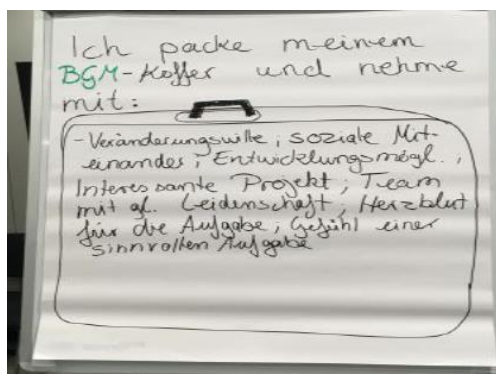 Ich packe meinem
BGM-Koffer und nehme
mit:
- Veränderungswille; soziale Mit-
einander; Entwicklungsmögl.,
Interessante Projekt; Team
mit gl. Leidenschaft; Herzblut
für die Aufgabe; Gefühl einer
sinnvollen Aufgabe